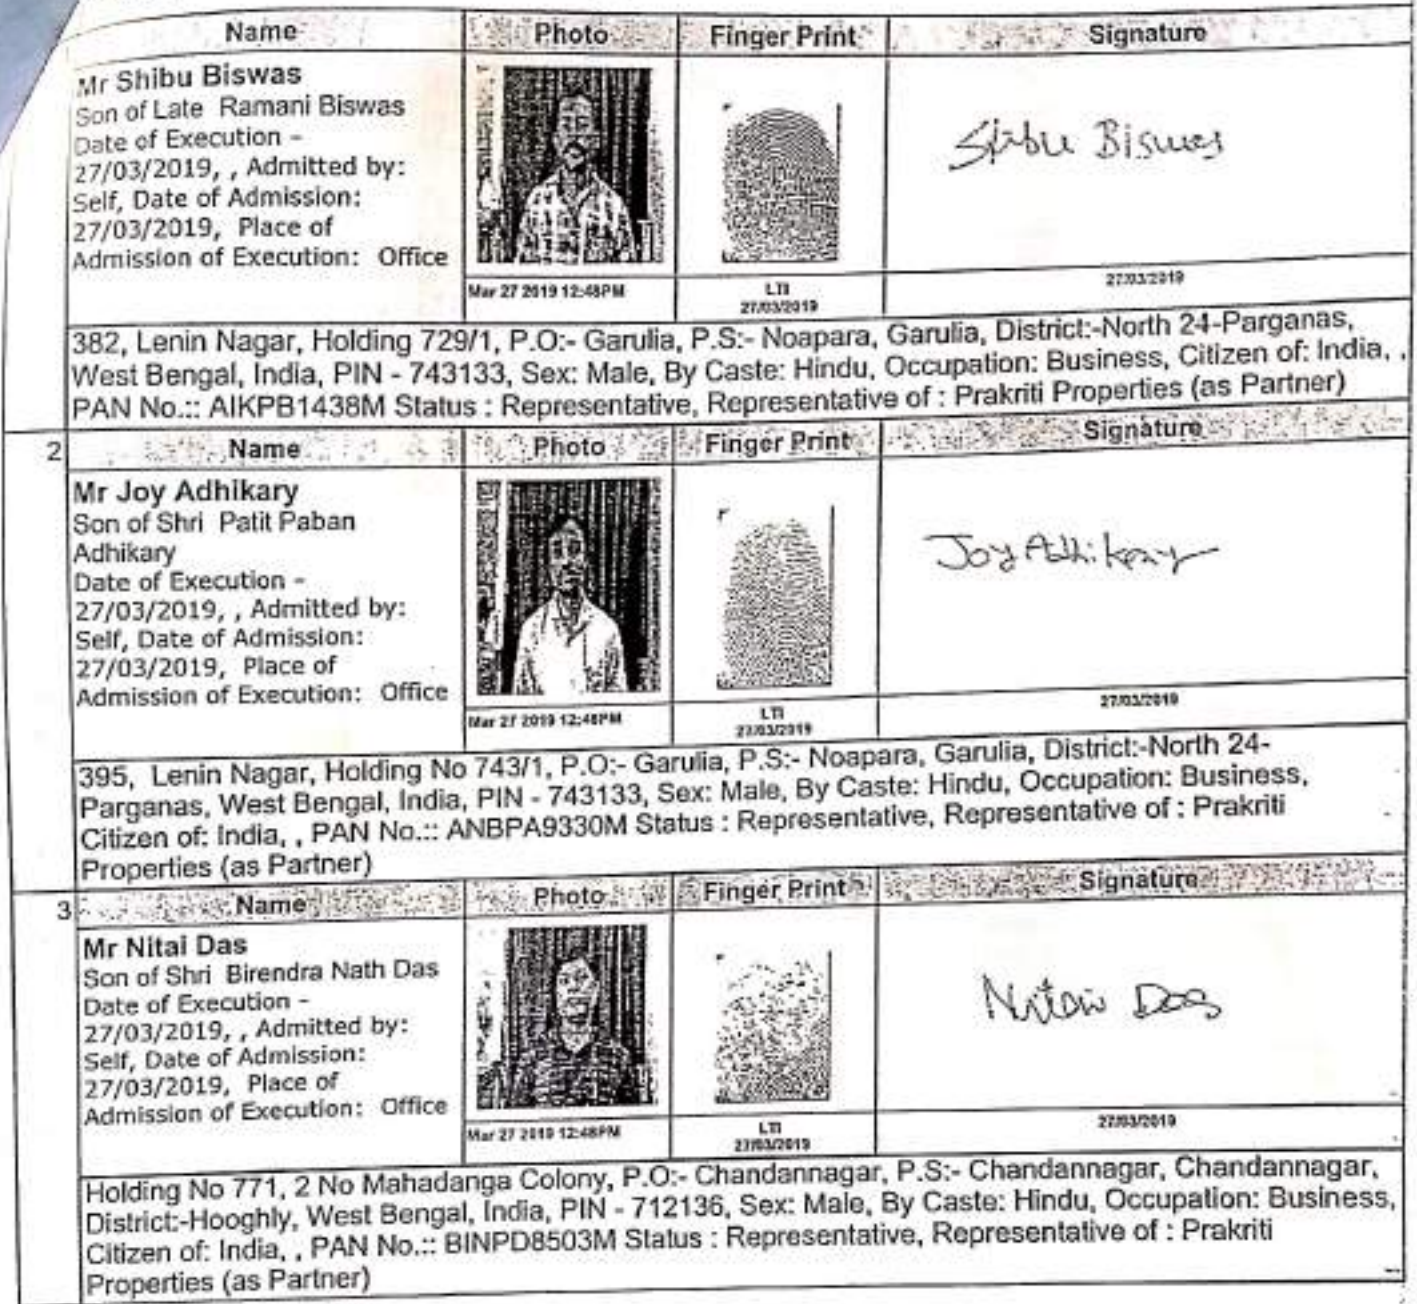 Name Photo Finger Print Signature
Mr Shibu Biswas
Son of Late Ramani Biswas
Date of Execution -
27/03/2019, , Admitted by:
Self, Date of Admission:
27/03/2019, Place of
Admission of Execution: Office
Shibu Biswas
Mar 27 2019 12:48PM
LTI
27/03/2019
27/03/2019
382, Lenin Nagar, Holding 729/1, P.O:- Garulia, P.S:- Noapara, Garulia, District:-North 24-Parganas,
West Bengal, India, PIN - 743133, Sex: Male, By Caste: Hindu, Occupation: Business, Citizen of: India, ,
PAN No.:: AIKPB1438M Status : Representative, Representative of : Prakriti Properties (as Partner)
2 Name Photo Finger Print Signature
Mr Joy Adhikary
Son of Shri Patit Paban
Adhikary
Date of Execution -
27/03/2019, , Admitted by:
Self, Date of Admission:
27/03/2019, Place of
Admission of Execution: Office
Joy Adhikary
Mar 27 2019 12:48PM
LTI
27/03/2019
27/03/2019
395, Lenin Nagar, Holding No 743/1, P.O:- Garulia, P.S:- Noapara, Garulia, District:-North 24-
Parganas, West Bengal, India, PIN - 743133, Sex: Male, By Caste: Hindu, Occupation: Business,
Citizen of: India, , PAN No.:: ANBPA9330M Status : Representative, Representative of : Prakriti
Properties (as Partner)
3 Name Photo Finger Print Signature
Mr Nitai Das
Son of Shri Birendra Nath Das
Date of Execution -
27/03/2019, , Admitted by:
Self, Date of Admission:
27/03/2019, Place of
Admission of Execution: Office
Nitai Das
Mar 27 2019 12:48PM
LTI
27/03/2019
27/03/2019
Holding No 771, 2 No Mahadanga Colony, P.O:- Chandannagar, P.S:- Chandannagar, Chandannagar,
District:-Hooghly, West Bengal, India, PIN - 712136, Sex: Male, By Caste: Hindu, Occupation: Business,
Citizen of: India, , PAN No.:: BINPD8503M Status : Representative, Representative of : Prakriti
Properties (as Partner)